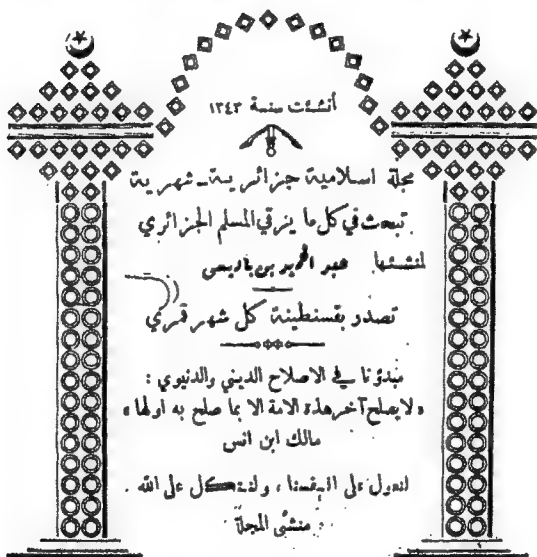 أنشئت سنة ١٣٤٣
مجلة اسلامية جزائرية - شهرية
تبحث في كل ما يرقي المسلم الجزائري
لمنشئها عبد الحميد بن باديس
تصدر بقسنطينة كل شهر قمري
مبدؤنا في الاصلاح الديني والدنيوي :
« لا يصلح آخر هذه الامة الا بما صلح به اولها »
مالك ابن انس
لنعول على انفسنا ، ولنتكل على الله .
منشئ المجلة